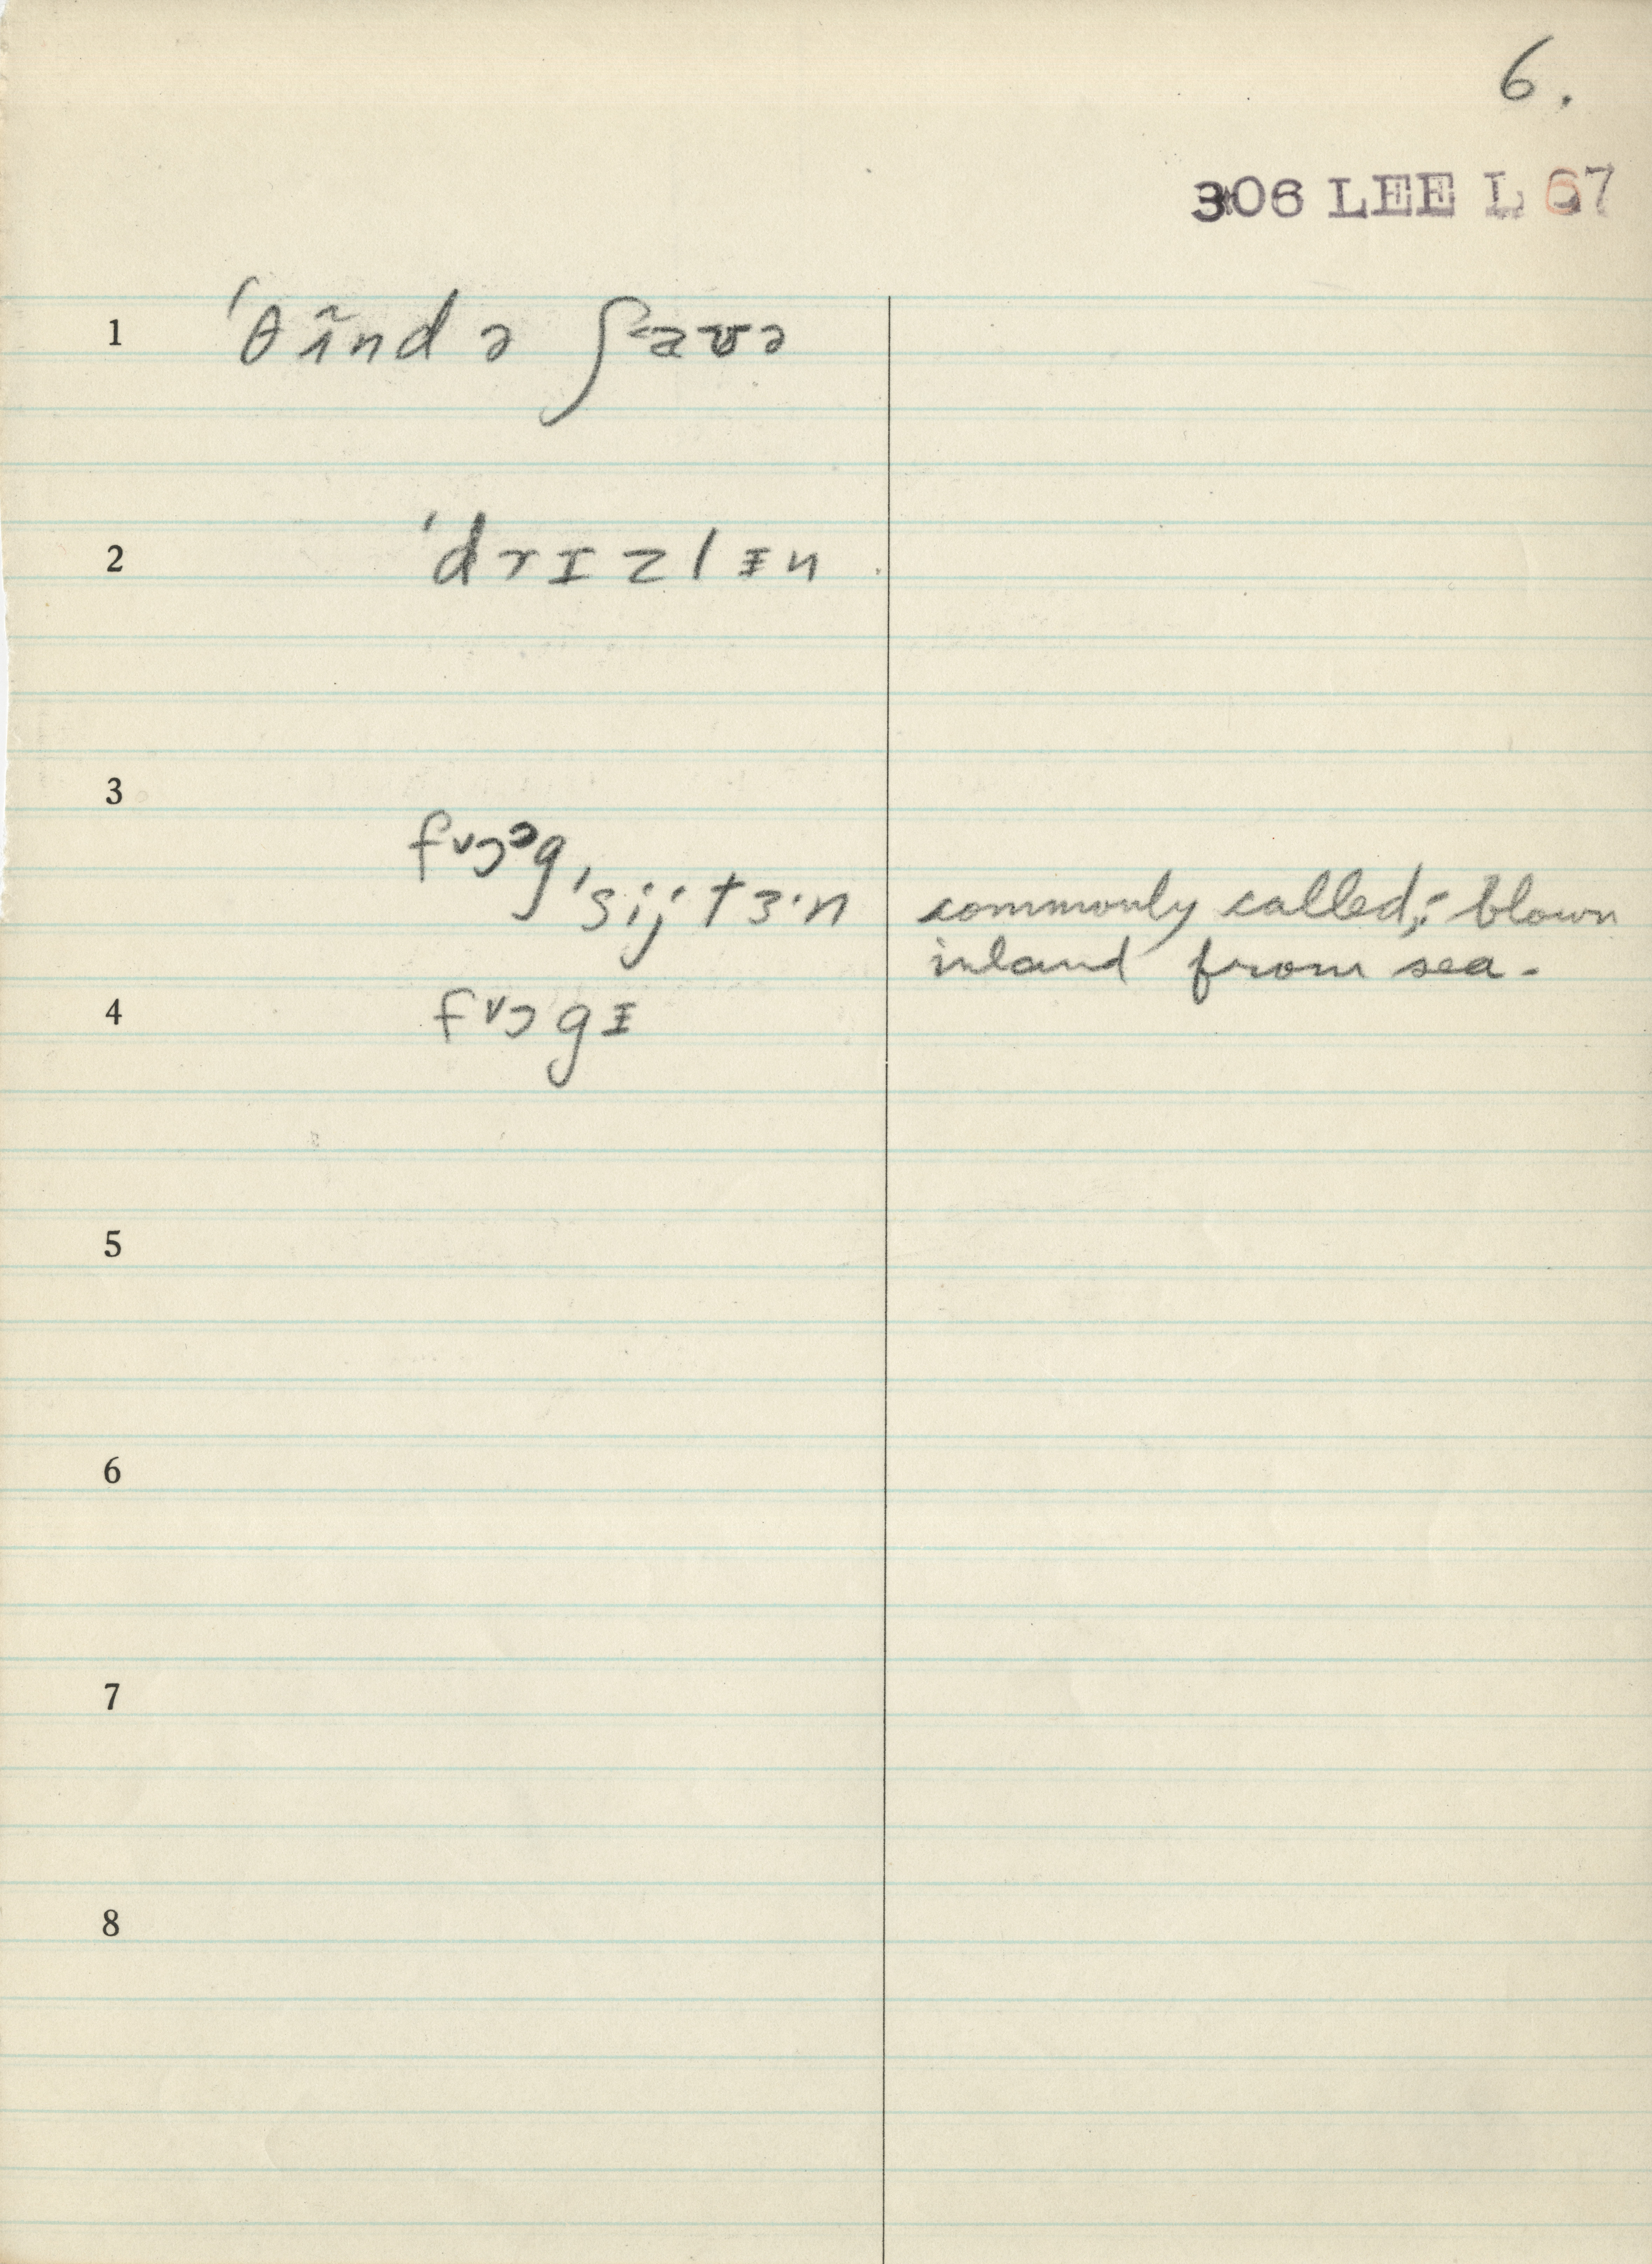 6.
306 LEE L 67
1 ˈθɜ̃ndə ʃaʊə
2 ˈdrɪzlɪ̵n
3
fɔ˅ᵊg
ˈsij tɜ·n commonly called; blown
inland from sea.
4 fɔ˅gɪ̵
5
6
7
8